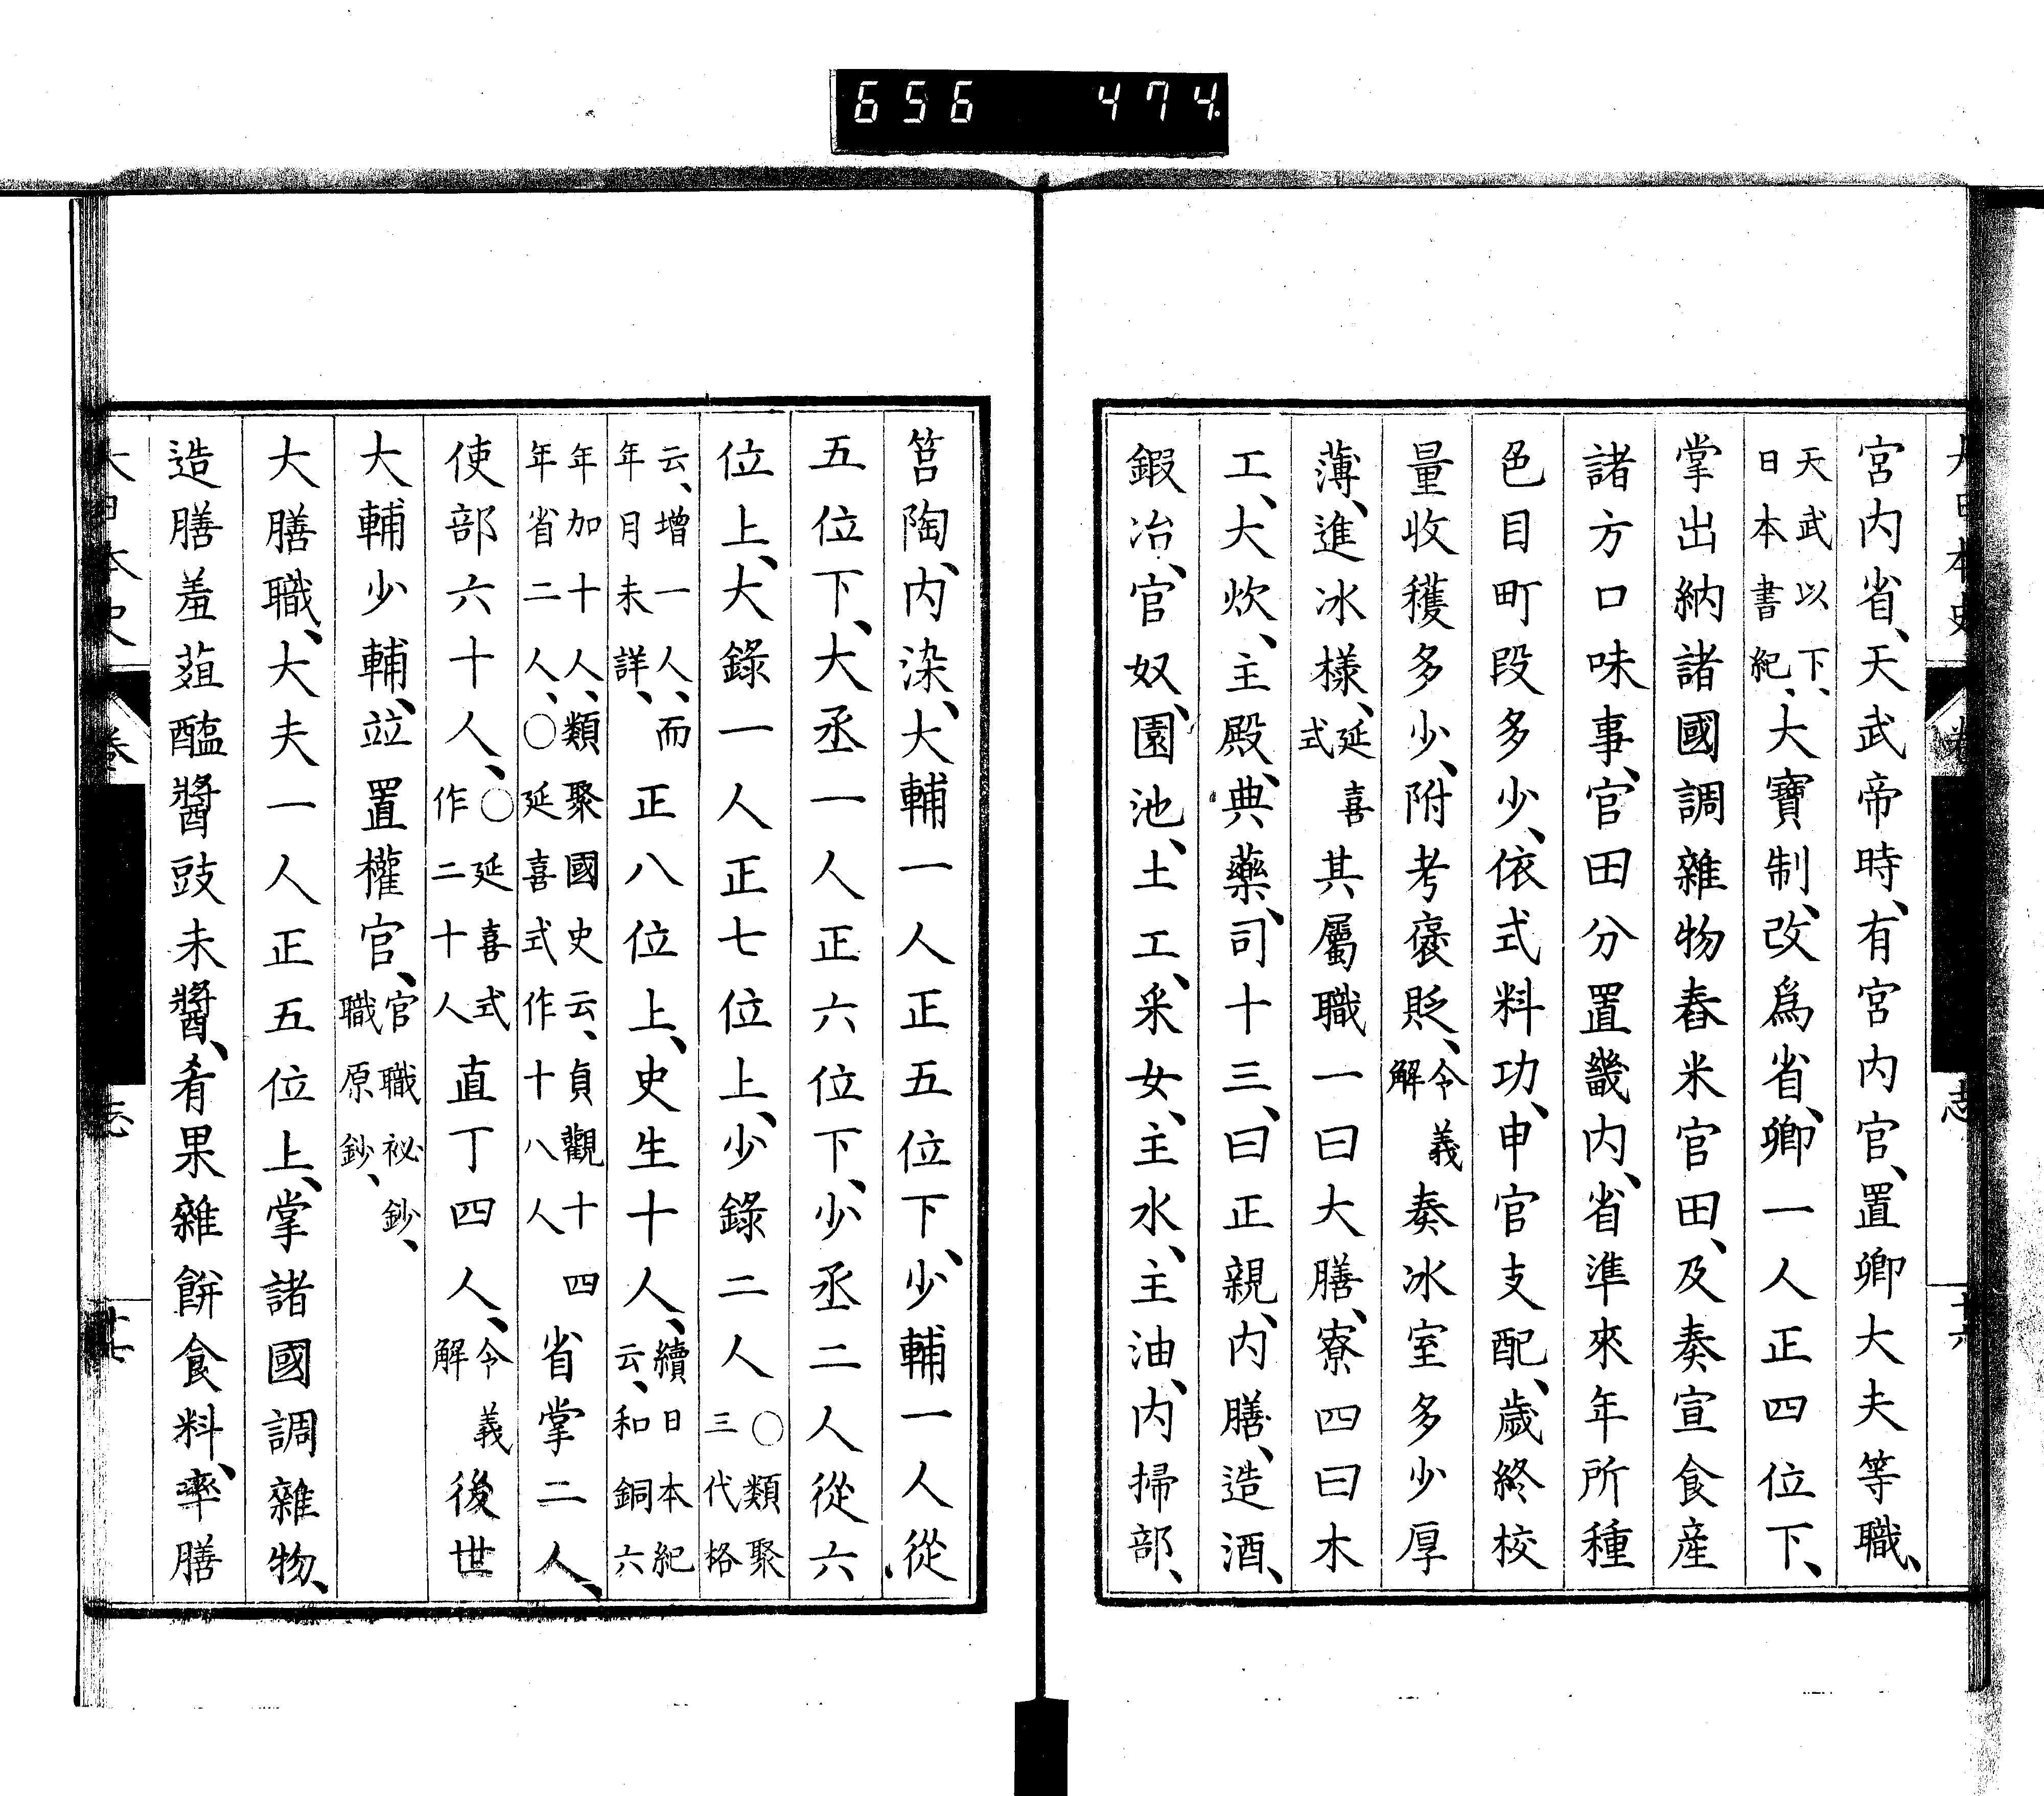 656 474
宮内省、天武帝時、有宮内官、置卿大夫等職、
天武以下、日本書紀、大寶制、改爲省、卿一人正四位下、
掌出納諸國調雜物舂米官田、及奏宣食産
諸方口味事、官田分置畿内、省準來年所種
色目町段多少、依式料功、申官支配、歳終校
量收穫多少、附考襃貶、令義解奏冰室多少厚
薄、進冰様、延喜式其屬職一曰大膳、寮四曰木
工、大炊、主殿、典藥、司十三、曰正親、内膳、造酒、
鍜冶、官奴、園池、土工、釆女、主水、主油、内掃部、
筥陶、内染、大輔一人正五位下、少輔一人從
五位下、大丞一人正六位下、少丞二人從六
位上、大錄一人正七位上、少錄二人〇類聚三代格
云、増一人、而年月未詳、正八位上、史生十人、續日本紀云、和銅六
年加十人、類聚國史云、貞觀十四年省二人、〇延喜式作十八人省掌二人、
使部六十人、〇延喜式作二十人直丁四人、令義解後世
大輔少輔、竝置權官、官職祕鈔、職原鈔、
大膳職、大夫一人正五位上、掌諸國調雜物、
造膳羞葅醢醬豉未醬、肴果雜餅食料、率膳
大日本史 卷 志 十七